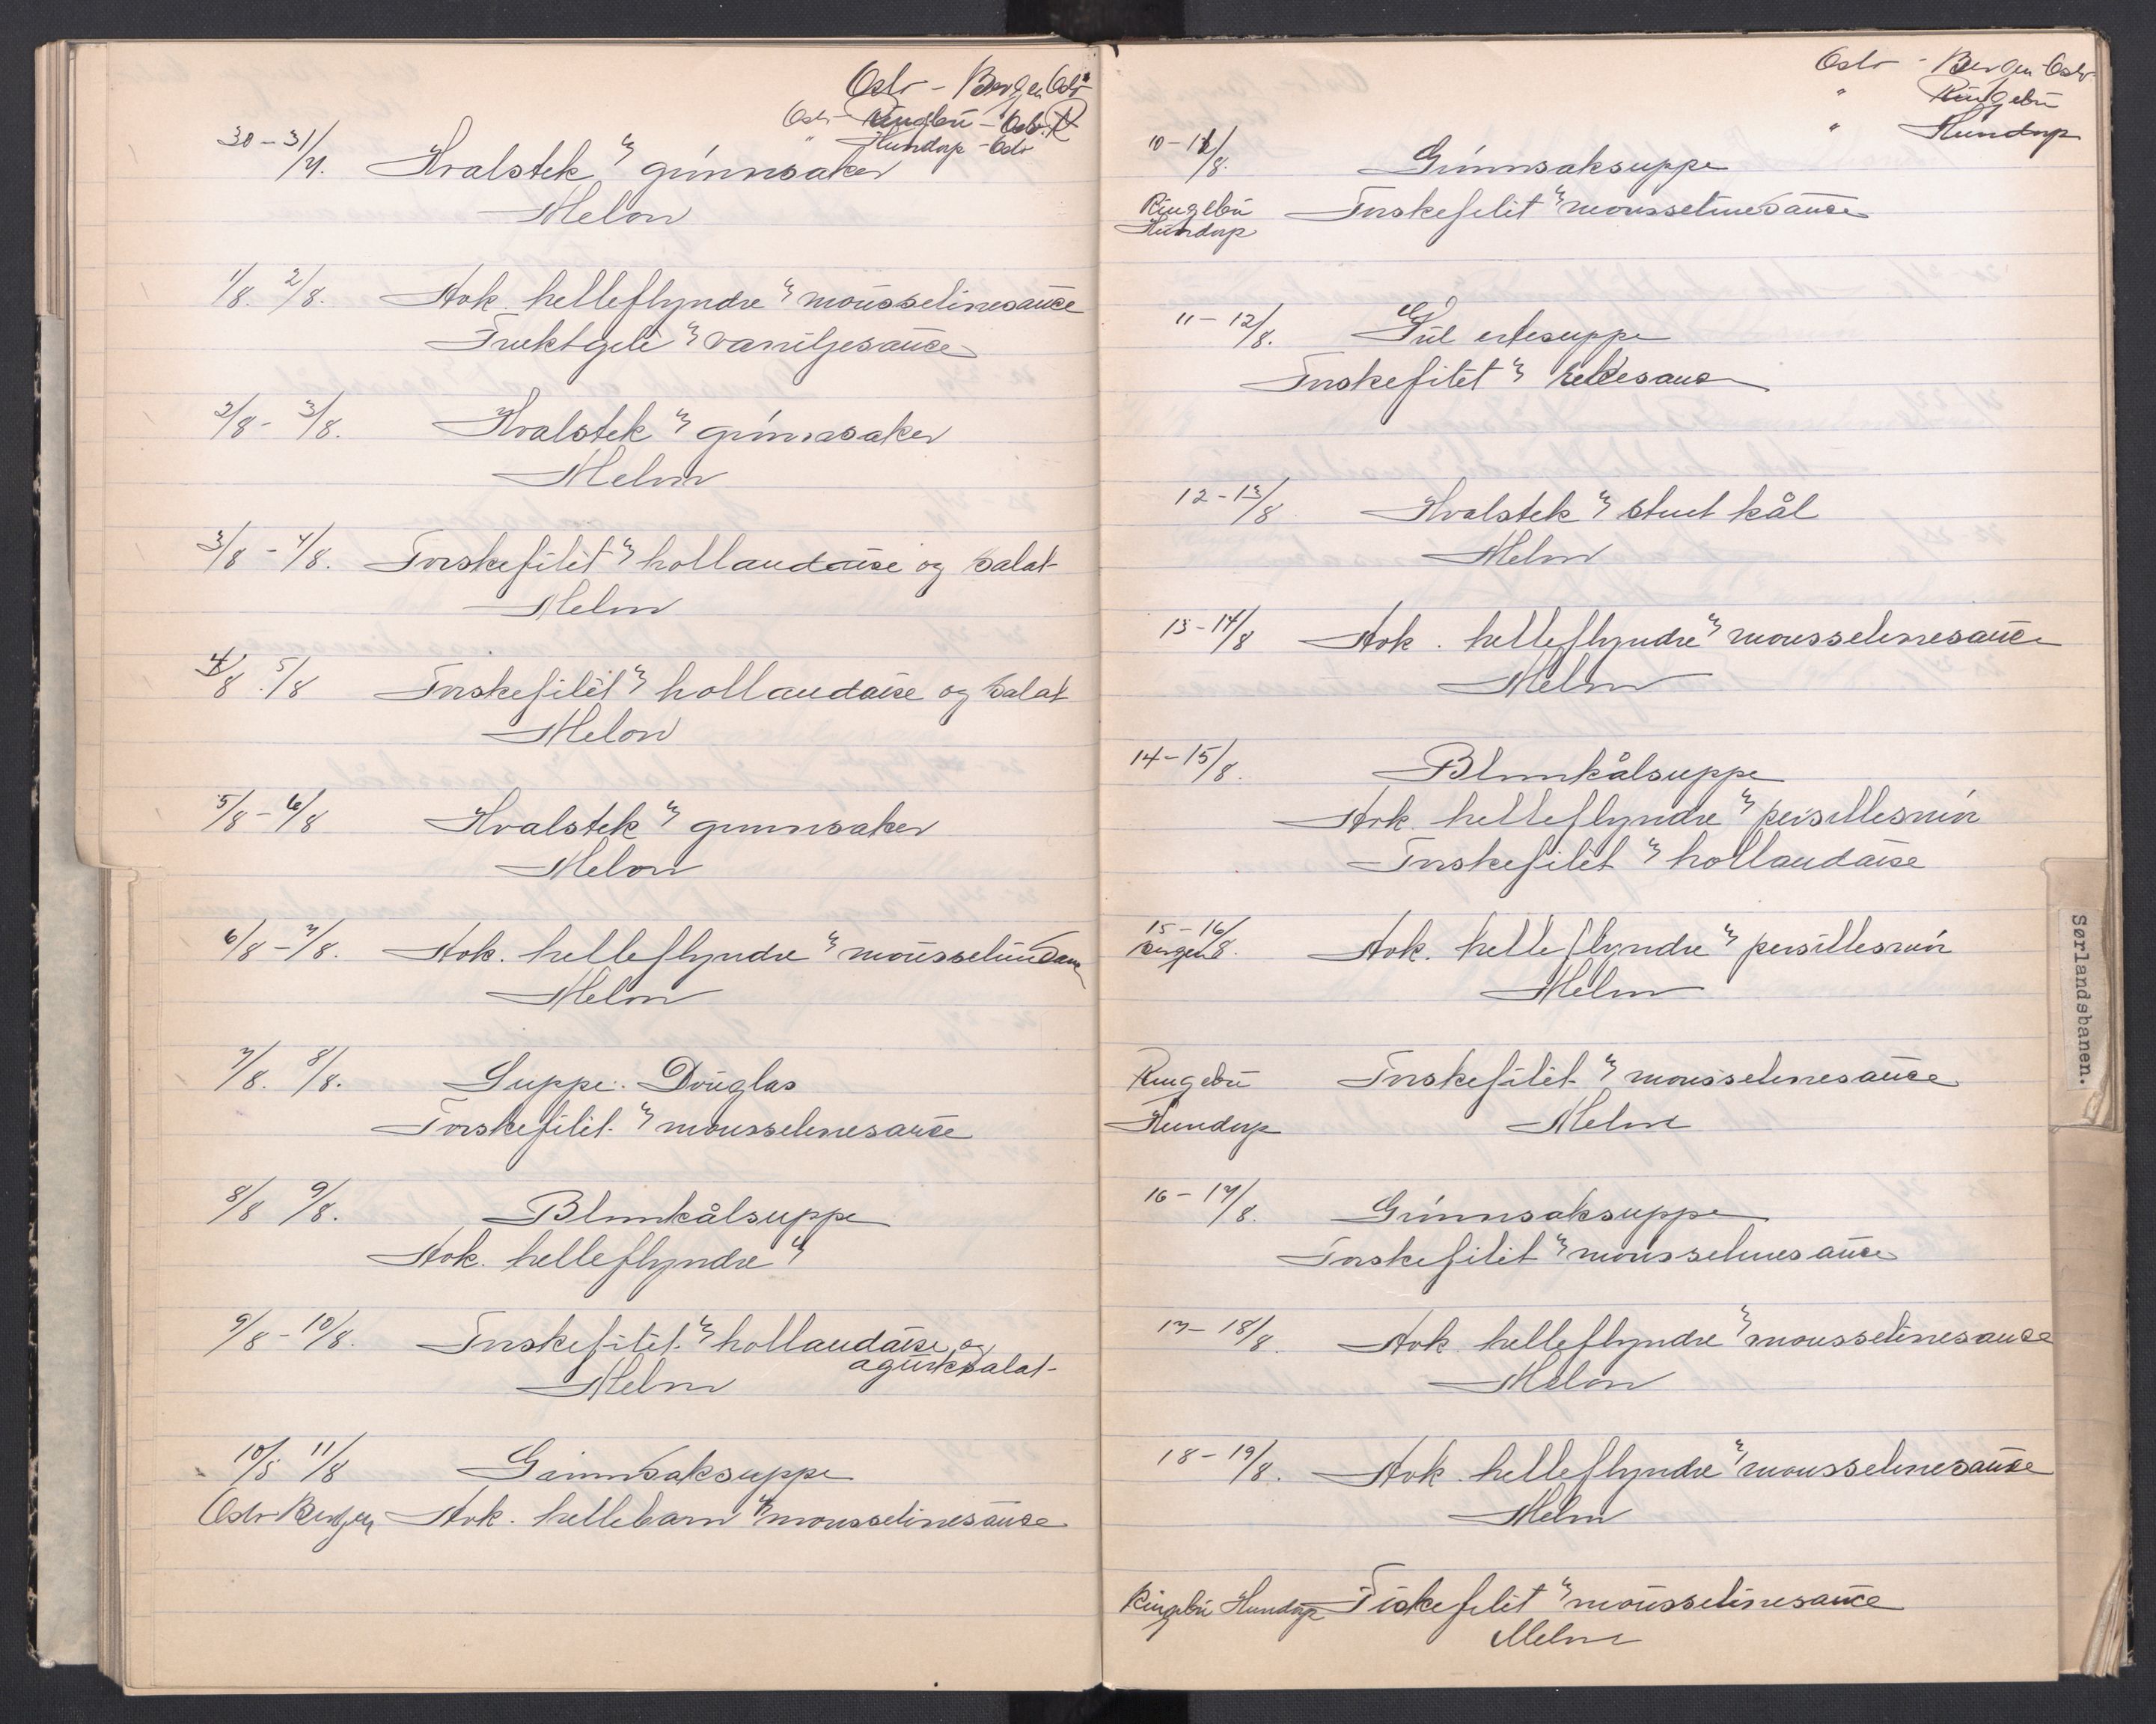 Oslo - Bergen Oslo
Oslo Ringebu - Oslo. R
" Hundorp - Oslo
30 - 31/7. Hvalstek m grønnsaker
Melon
1/8. 2/8. Kok. helleflyndre m mousselinesauce
Fruktgele m vaniljesauce
2/8 - 3/8. Hvalstek m grønnsaker
Melon
3/8 - 4/8. Torskefilet m hollandaise og salat
Melon
4/8. 5/8 Torskefilet m hollandaise og salat
Melon
5/8 - 6/8 Hvalstek m grønnsaker
Melon
6/8 - 7/8. Kok. helleflyndre m mousselinesauce
Melon
7/8. 8/8. Suppe. Douglas
Torskefilet m mousselinesauce
8/8 9/8. Blomkålsuppe
Kok. helleflyndre m
9/8 - 10/8. Torskefilet m hollandaise og
agurksalat
Melon
10/8 11/8 Grønnsaksuppe
Oslo Bergen Kok. hellebarn m mousselinesauce
Oslo - Bergen - Oslo
" Ringebu
" Hundorp
10 - 11/8. Grønnsaksuppe
Ringebu Torskefilet m mousselinesauce
Hundorp
11 - 12/8. Gul ertesuppe
Torskefilet m rekesaus
12 - 13/8 Hvalstek m stuet kål
Melon
13 - 14/8 Kok. helleflyndre m mousselinesauce
Melon
14 - 15/8. Blomkålsuppe
Kok. helleflyndre m persillesmør
Torskefilet m hollandaise
15 - 16/8. Kok. helleflyndre m persillesmør
Bergen
Melon
Ringebu Torskefilet m mousselinesauce
Hundorp Melon
16 - 17/8. Grønnsaksuppe
Torskefilet m mousselinesauce
17 - 18/8. Kok helleflyndre m mousselinesauce
Melon
18 - 19/8. Kok. helleflyndre m mousselinesauce
Melon
Ringebu Hundorp Fiskefilet m mousselinesauce
Melon
Sørlandsbanen.